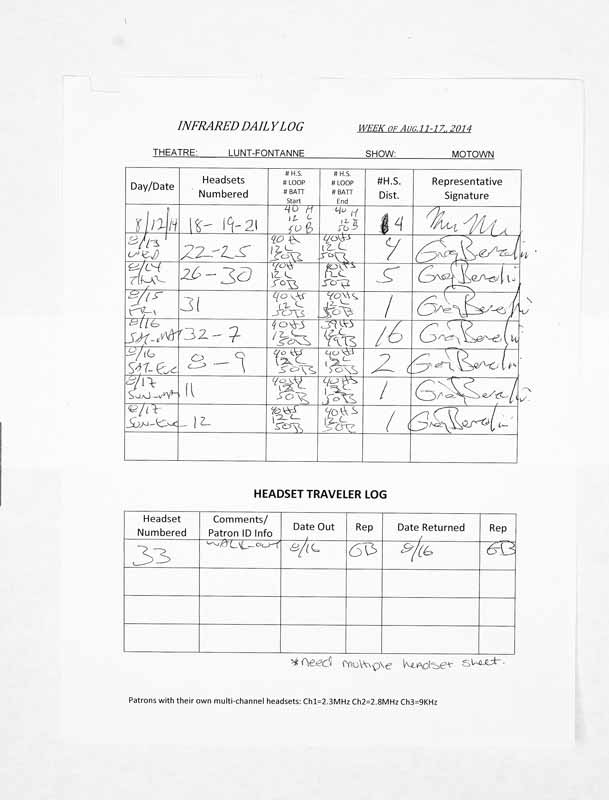 INFRARED DAILY LOG WEEK OF AUG.11-17, 2014
THEATRE: LUNT-FONTANNE SHOW: MOTOWN
Day/Date Headsets Numbered # H.S. # LOOP # BATT Start # H.S. # LOOP # BATT End #H.S. Dist. Representative Signature
8/12/14 18-19-21 40 H 12 L 50 B 40 H 12 50 B 4
8/13 WED 22-25 40 H 12 L 50B 40HS 12L 50B 4 Greg Bersalini
8/14 THUR 26-30 40HS 12L 50B 40HS 12L 50B 5
8/15 FRI 31 40HS 12L 50B 40HS 12L 50B 1
8/16 SAT-MAT 32-7 40HS 12L 50B 39HS 12L 49B 16
8/16 SAT-EVE 8-9 40HS 12L 50B 40HS 12L 50B 2
8/17 SUN-MAT 11 40HS 12L 50B 40HS 12L 50B 1
8/17 SUN-EVE 12 40HS 12L 50B 40HS 12L 50B 1
HEADSET TRAVELER LOG
Headset Numbered Comments/ Patron ID Info Date Out Rep Date Returned Rep
33 WALK-OUT 8/16 GB 8/16 GB
*need multiple headset sheet.
Patrons with their own multi-channel headsets: Ch1=2.3MHz Ch2=2.8MHz Ch3=9KHz